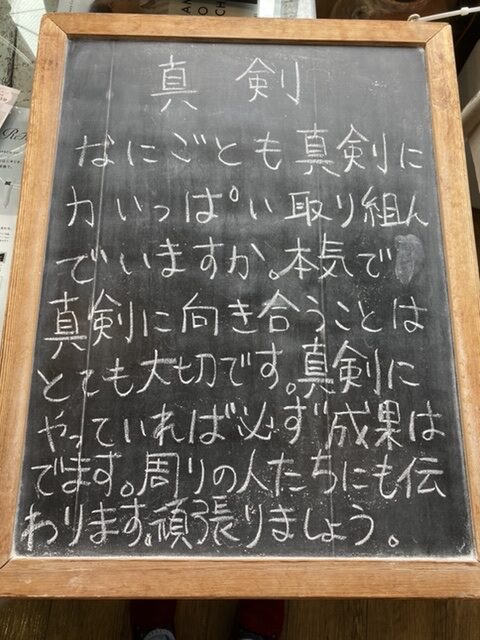 真剣
なにごとも真剣に
力いっぱい取り組ん
でいますか。本気で
真剣に向き合うことは
とても大切です。真剣に
やっていれば必ず成果は
でます。周りの人たちにも伝
わります。頑張りましょう。